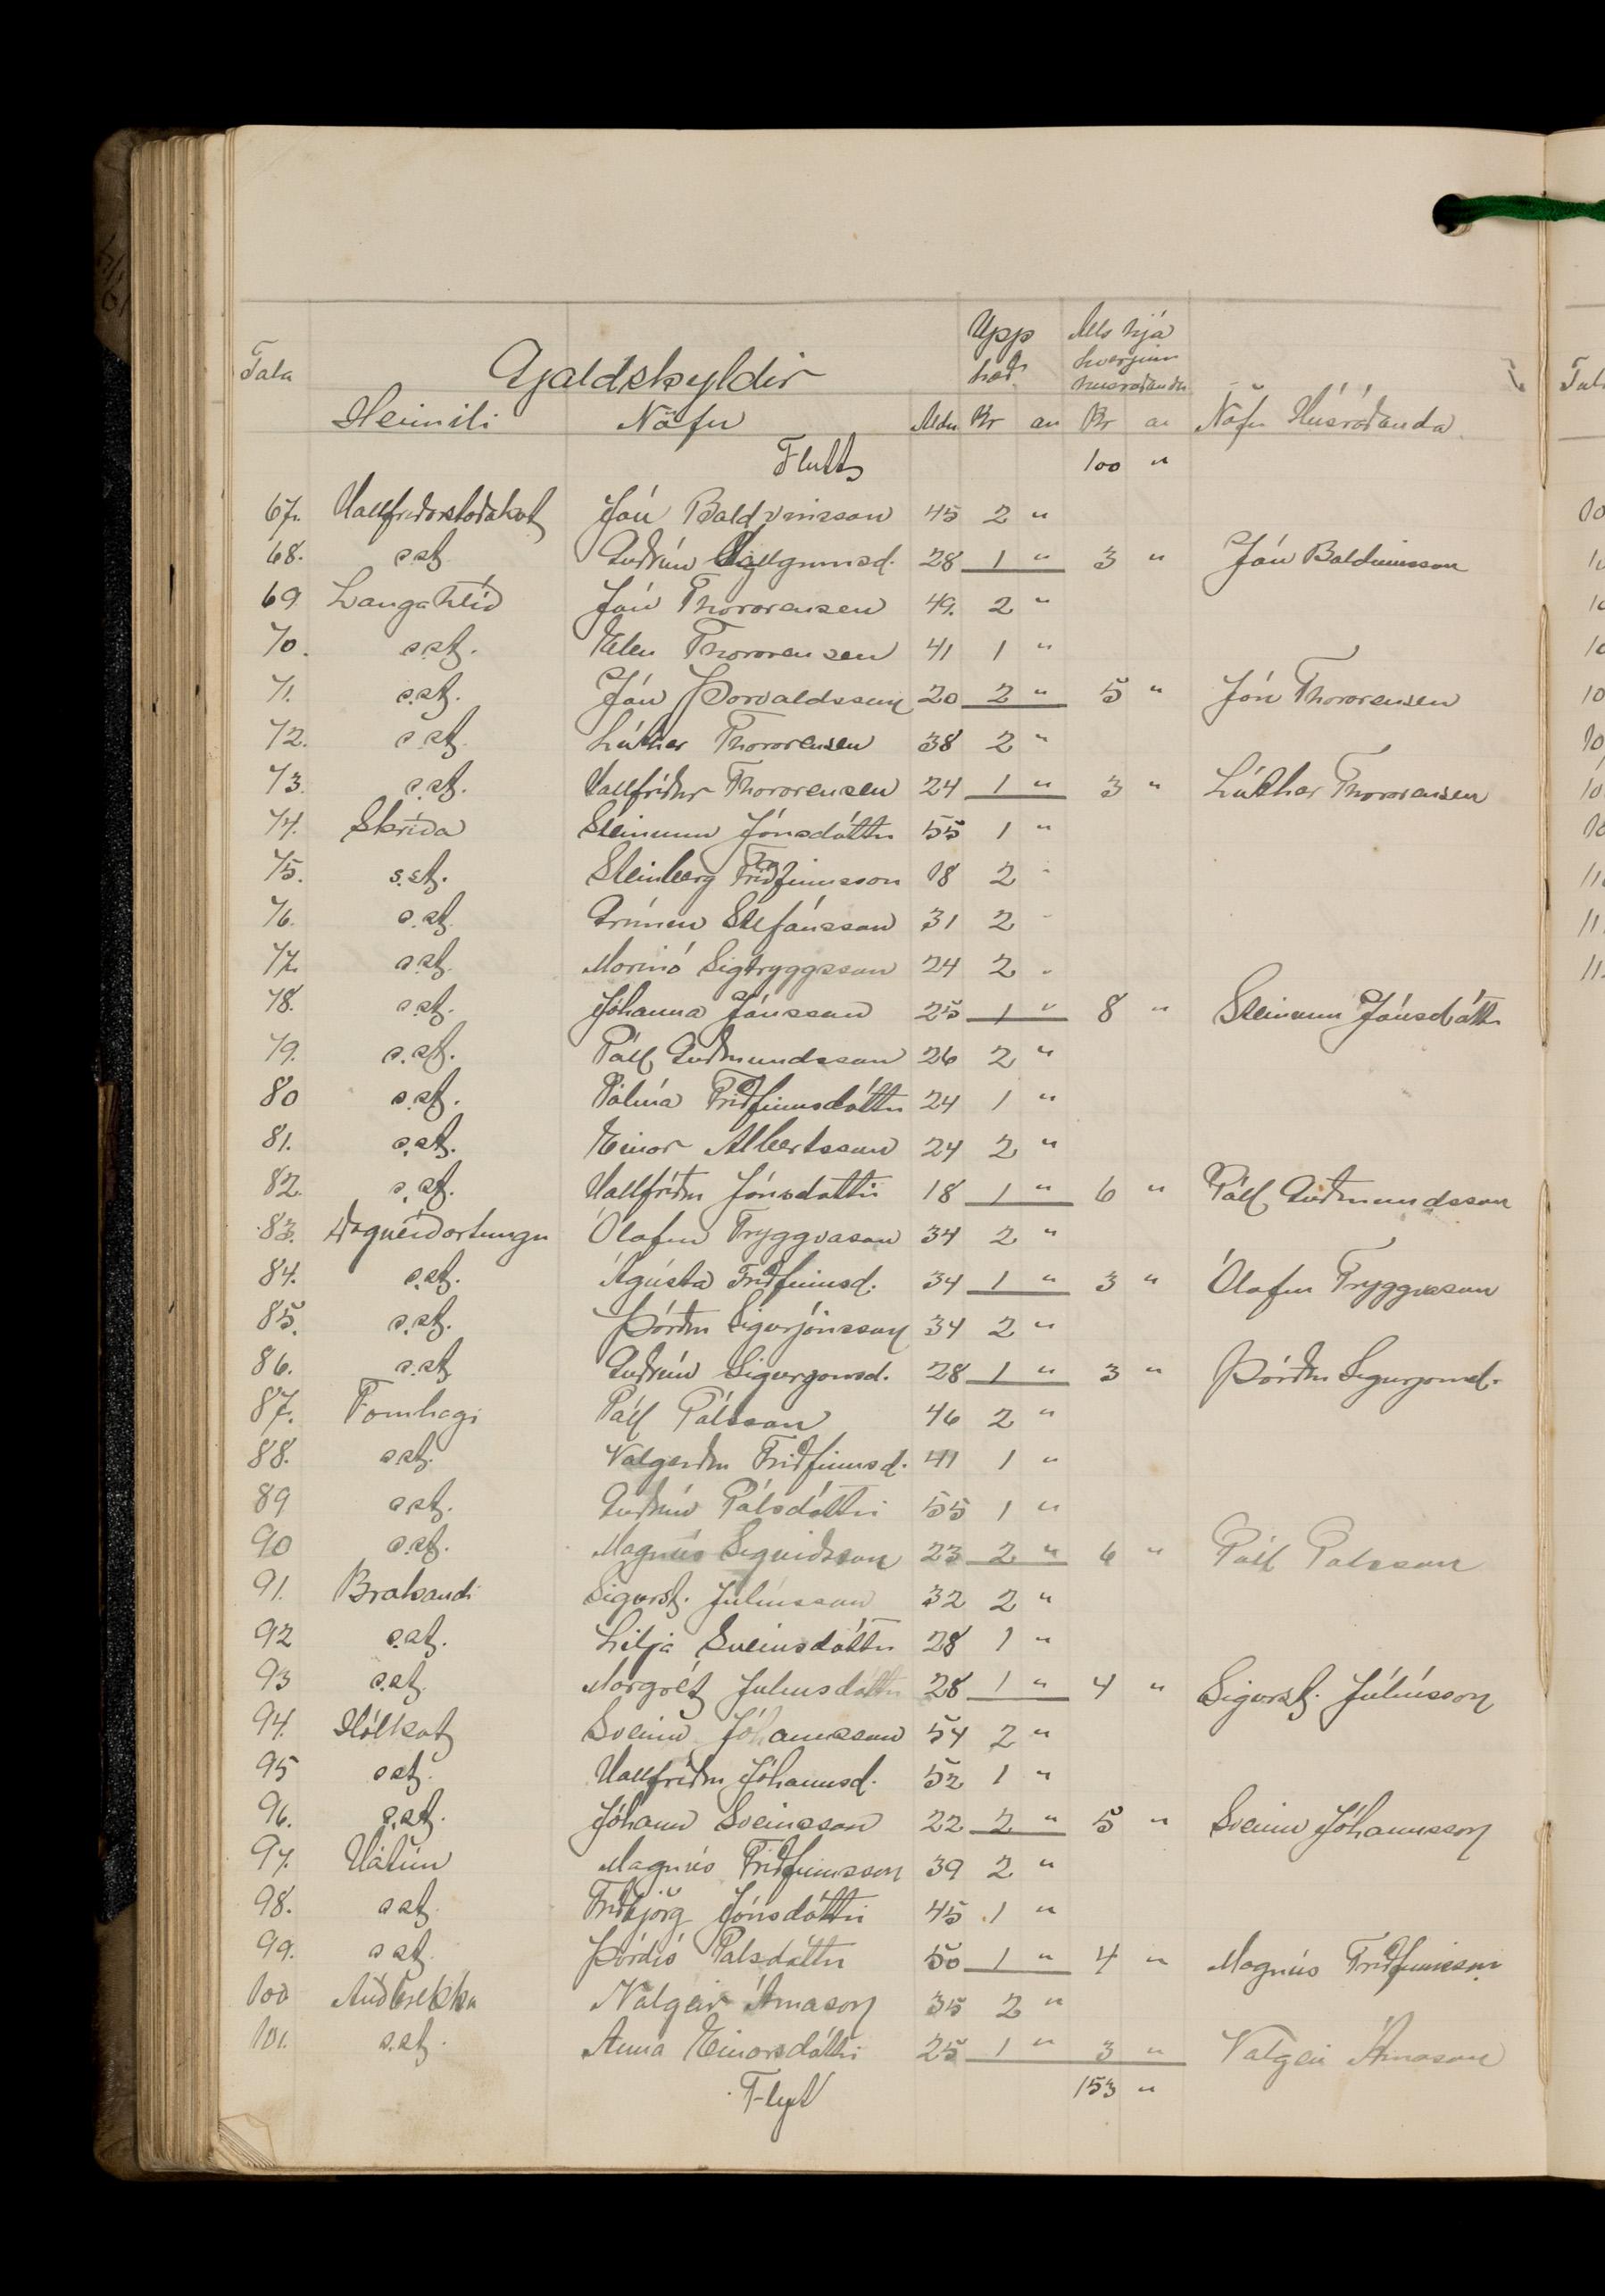 Tala Gjaldskyldir Upp hæð Alls hjá hverjum húsráðanda
Heimili Nöfn Aldur Kr au Kr au Nöfn Húsráðanda
Flutt 100 "
67. Hallfríðarstaðakot Jón Baldvinsson 45 2 "
68. s.st. Guðrún 28 1 " 3 " Jón Baldvinsson
69 Langahlíð Jón Thorarensen 49. 2 "
70. s.st. Elen Thorarensen 41 1 "
71. s.st. Jón Þorvaldsson 20 2 " 5 " Jón Thorarensen
72. s.st. Lúther Thorarensen 38 2 "
73. s.st. Hallfríður Thorarensen 24 1 " 3 " Lúther Thorarensen
74. Skriða Steinunn Jónsdóttir 55 1 "
75. s.st. Steinberg Friðfinnsson 18 2 "
76. s.st. Grímur Stefánsson 31 2 "
77. s.st. Marinó Sigtryggsson 24 2 "
78. s.st. Jóhanna Jónsson 25 1 " 8 " Steinunn Jónsdóttir
79. s.st. Páll Guðmundsson 26 2 "
80 s.st. Pálína Friðfinnsdóttir 24 1 "
81. s.st. Einar Albertsson 24 2 "
82. s.st. Hallfríður Jónsdóttir 18 1 " 6 " Páll Guðmundsson
83. Ólafur Tryggvason 34 2 "
84. s.st. Ágústa Friðfinnsd. 34 1 " 3 " Ólafur Tryggvason
85. s.st. Þórður Sigurjónsson 34 2 "
86. s.st. Guðrún Sigurjónsd. 28 1 " 3 " Þórður Sigurjónsd.
87. Fornhagi Páll Pálsson 46 2 "
88. s.st. Valgerður Friðfinnsd. 41 1 "
89 s.st. Guðrún Pálsdóttir 55 1 "
90 s.st. Magnús Sigurðsson 23 2 " 6 " Páll Pálsson
91. Brakandi Sigurst. Júlíusson 32 2 "
92 s.st. Lilja Sveinsdóttir 28 1 "
93 s.st. Margrét Júlíusdóttir 28 1 " 4 " Sigurst. Júlíusson
94. Hólkot Sveinn Jóhannsson 54 2 "
95 s.st. Hallfríður Jóhannsd. 52 1 "
96. s.st. Jóhann Sveinsson 22 2 " 5 " Sveinn Jóhannsson
97. Hátún Magnús Friðfinnsson 39 2 "
98. s.st. Friðbjörg Jónsdóttir 45 1 "
99. s.st. Þórdís Pálsdóttir 50 1 " 4 " Magnús Friðfinnsson
100 Auðbrekka Valgeir Árnason 35 2 "
101. s.st. Anna Einarsdóttir 25 1 " 3 " Valgeir Árnason
Flyt 153 "